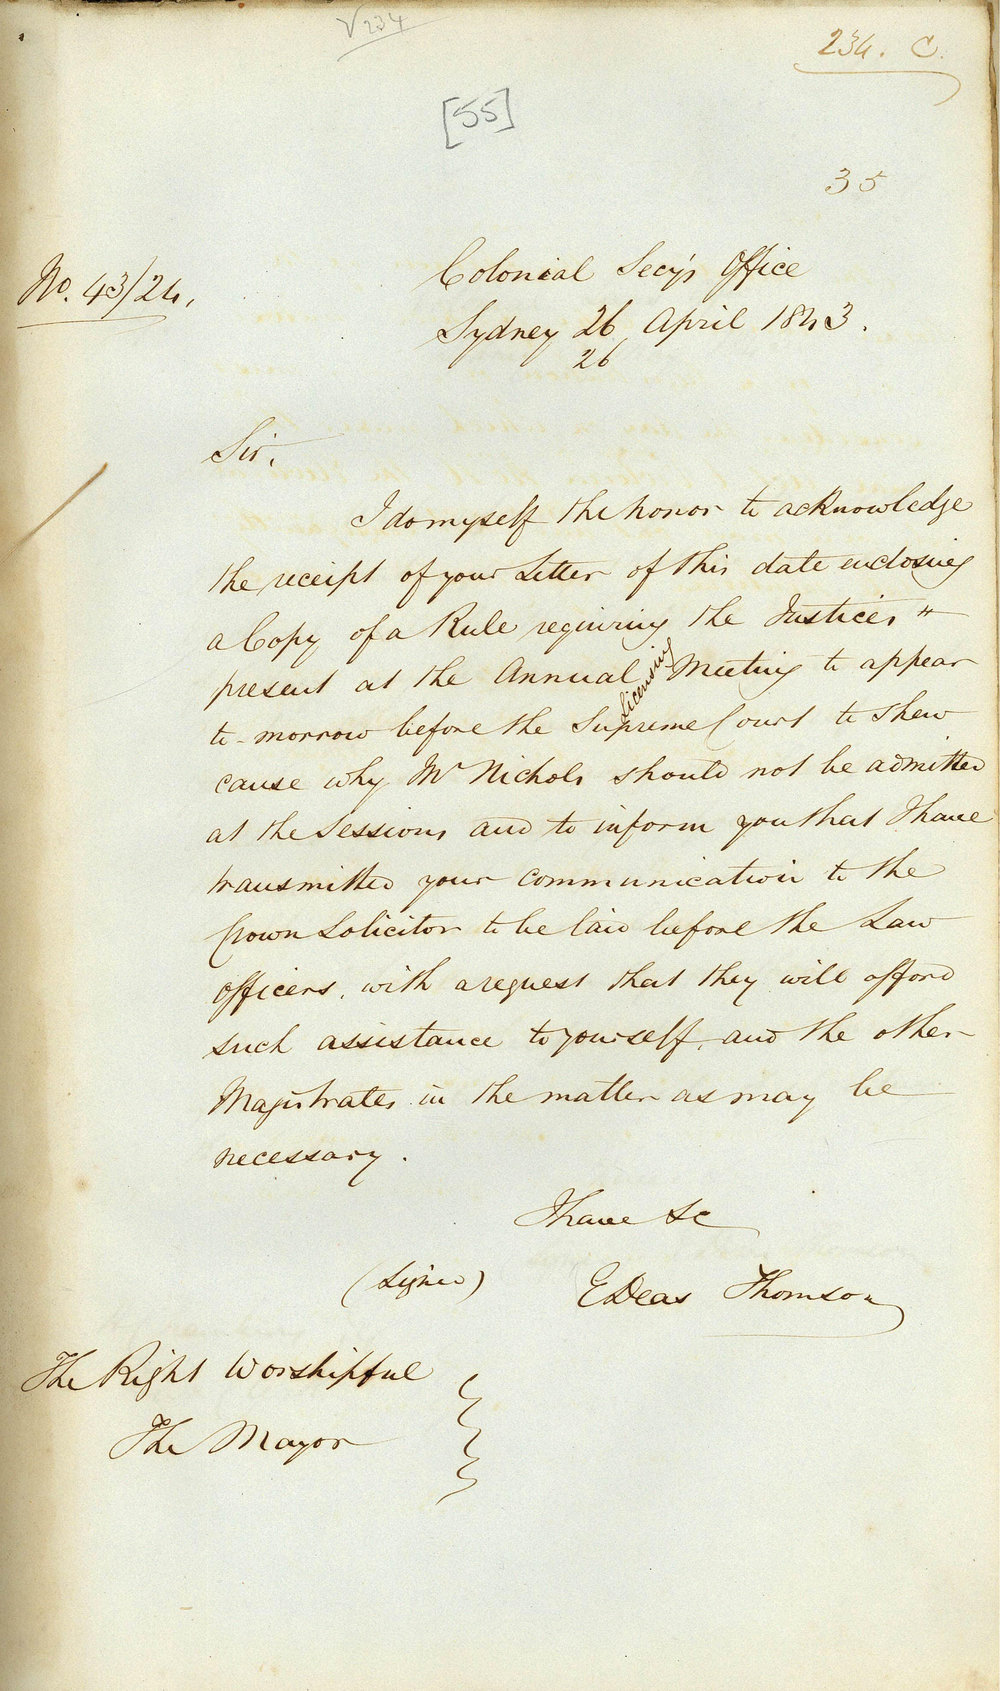 V 234
234. C.
[55]
35
No. 43/24.
Colonial Secy's Office
Sydney 26 April 1843.
26
Sir,
I do myself the honor to acknowledge
the receipt of your Letter of this date enclosing
a Copy of a Rule requiring the Justices "
present at the Annual Licensing Meeting to appear
to-morrow before the Supreme Court to shew
cause why Mr Nichols should not be admitted
at the Sessions, and to inform you that I have
transmitted your communication to the
Crown Solicitor to be laid before the Law
Officers, with a request that they will afford
such assistance to yourself, and the other
Magistrates in the matter as may be
necessary.
I have &c
(Signed) E Deas Thomson
The Right Worshipful
The Mayor